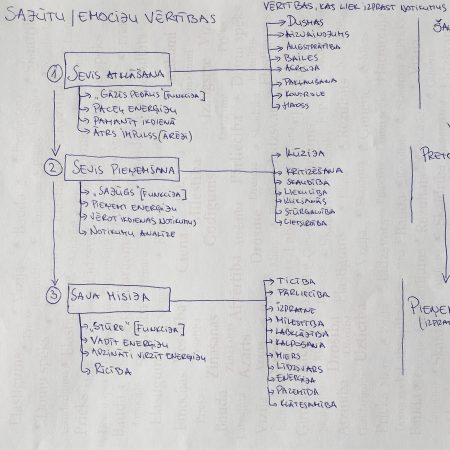 SAJŪTU / EMOCIJU VĒRTĪBAS
VĒRTĪBAS, KAS LIEK IZPRAST NOTIKUMUS
① SEVIS ATKLĀŠANA
„GĀZES PEDĀLIS" [FUNKCIJA]
PACEĻ ENERĢIJU
PAMANĪT IKDIENĀ
ĀTRS IMPULSS (ĀRĒJI)
DUSMAS
AIZVAINOJUMS
AUGSTPRĀTĪBA
BAILES
AGRESIJA
PAKĻAUŠANA
KONTROLE
HAOSS
② SEVIS PIEŅEMŠANA
„SAJŪGS" [FUNKCIJA]
PIEŅEMT ENERĢIJU
VĒROT IKDIENAS NOTIKUMUS
NOTIKUMU ANALĪZE
ILŪZIJA
KRITIZĒŠANA
SKAUDĪBA
LIEKULĪBA
STŪRGALVĪBA
CIETSIRDĪBA
③ SAVA MISIJA
„STŪRE" [FUNKCIJA]
VADĪT ENERĢIJU
APZINĀTI VIRZĪT ENERĢIJU
RĪCĪBA
TICĪBA
PĀRLIECĪBA
IZPRATNE
MĪLESTĪBA
LABKLĀJĪBA
KALPOŠANA
MIERS
LĪDZSVARS
ENERĢIJA
PAZEMĪBA
KLĀTESAMĪBA